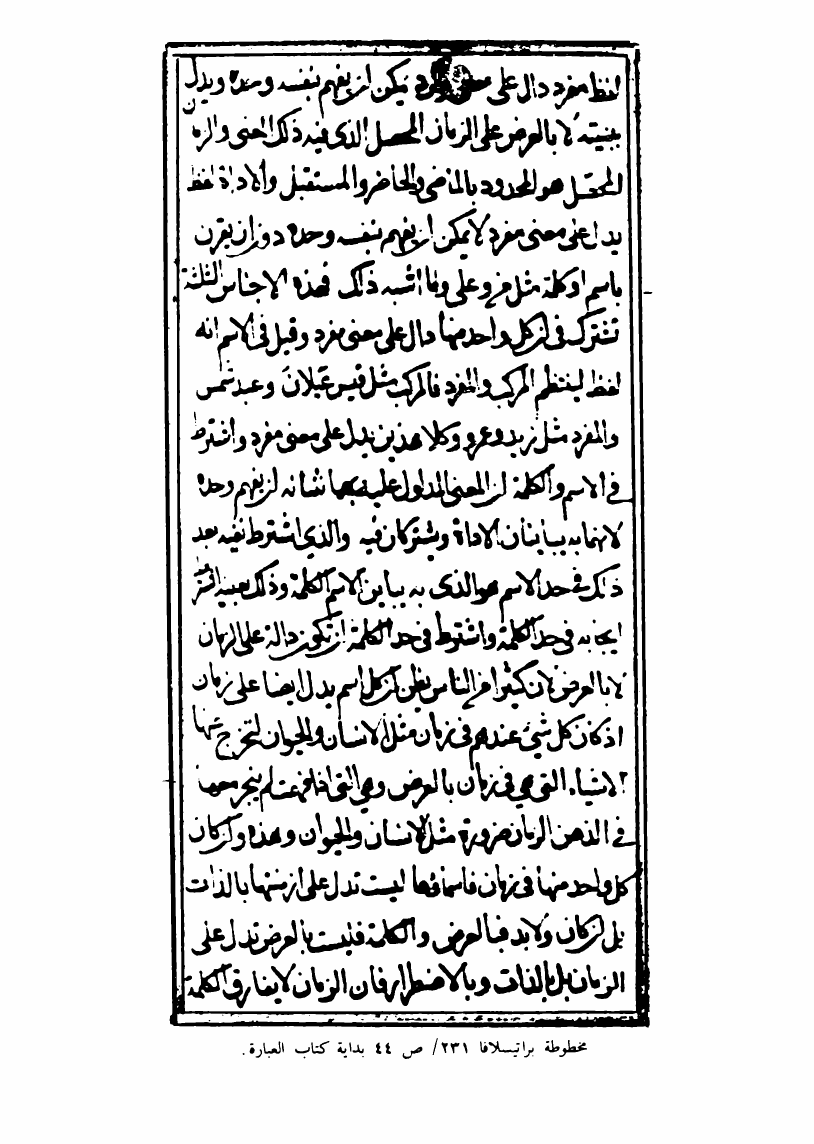 لفظ مفرد دال على معنى مفرد يمكن ان يفهم بنفسه وحده ويدل
ببنيته لا بالعرض على الزمان المحصل الذي فيه ذلك المعنى والزمان
المحصل هو المحدود بالماضي والحاضر والمستقبل والاداة لفظ
يدل على معنى مفرد لا يمكن ان يفهم بنفسه وحده دون ان يقرن
باسم او كلمة مثل من وعلى وما اشبه ذلك فهذه الاجناس الثلثة
تشترك في ان كل واحد منها دال على معنى مفرد وقيل في الاسم انه
لفظ لينتظم المركب والمفرد فالمركب مثل قيس عيلان وعبد شمس
والمفرد مثل زيد وعمرو وكلا هذين يدل على معنى مفرد واشترط
في الاسم والكلمة ان المعنى المدلول عليه بهما شانه ان يفهم وحده
لانهما به يباينان الاداة ويشتركان فيه والذي اشترط نفيه بعد
ذلك في حد الاسم هو الذي به يباين الاسم الكلمة وذلك بعينه اشترط
ايجابه في حد الكلمة واشترط في حد الكلمة ان تكون دالة على الزمان
لا بالعرض لان كثيرا من الناس يظن ان كل اسم يدل ايضا على زمان
اذ كان كل شيء عندهم في زمان مثل الانسان والحيوان لتخرج عنها
الاشياء التي هي في زمان بالعرض وهي التي اذا فهمت لم ينجر معها
في الذهن الزمان ضرورة مثل الانسان والحيوان وهذه وان كان
كل واحد منها في زمان فاسماؤها ليست تدل على ازمنتها بالذات
بل ان كان ولا بد فبالعرض والكلمة فليست بالعرض تدل على
الزمان بل بالذات وبالاضطرار فان الزمان لا يفارق الكلمة
مخطوطة براتيسلافا ٢٣١/ ص ٤٤ بداية كتاب العبارة .